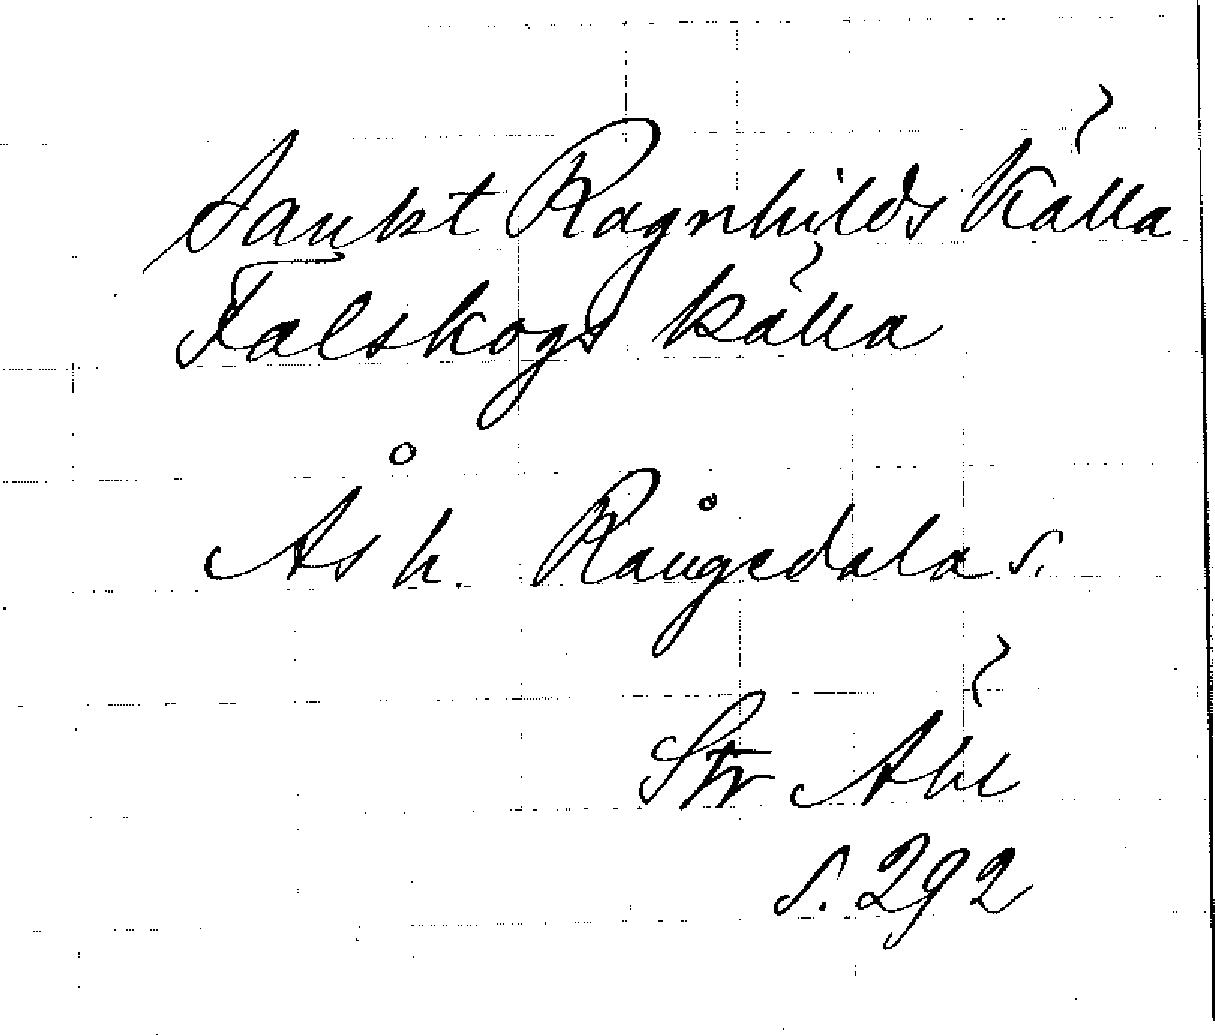 Sankt Ragnhilds Källa
Falskogs källa
Ås h. Rångedala s.
s. 292